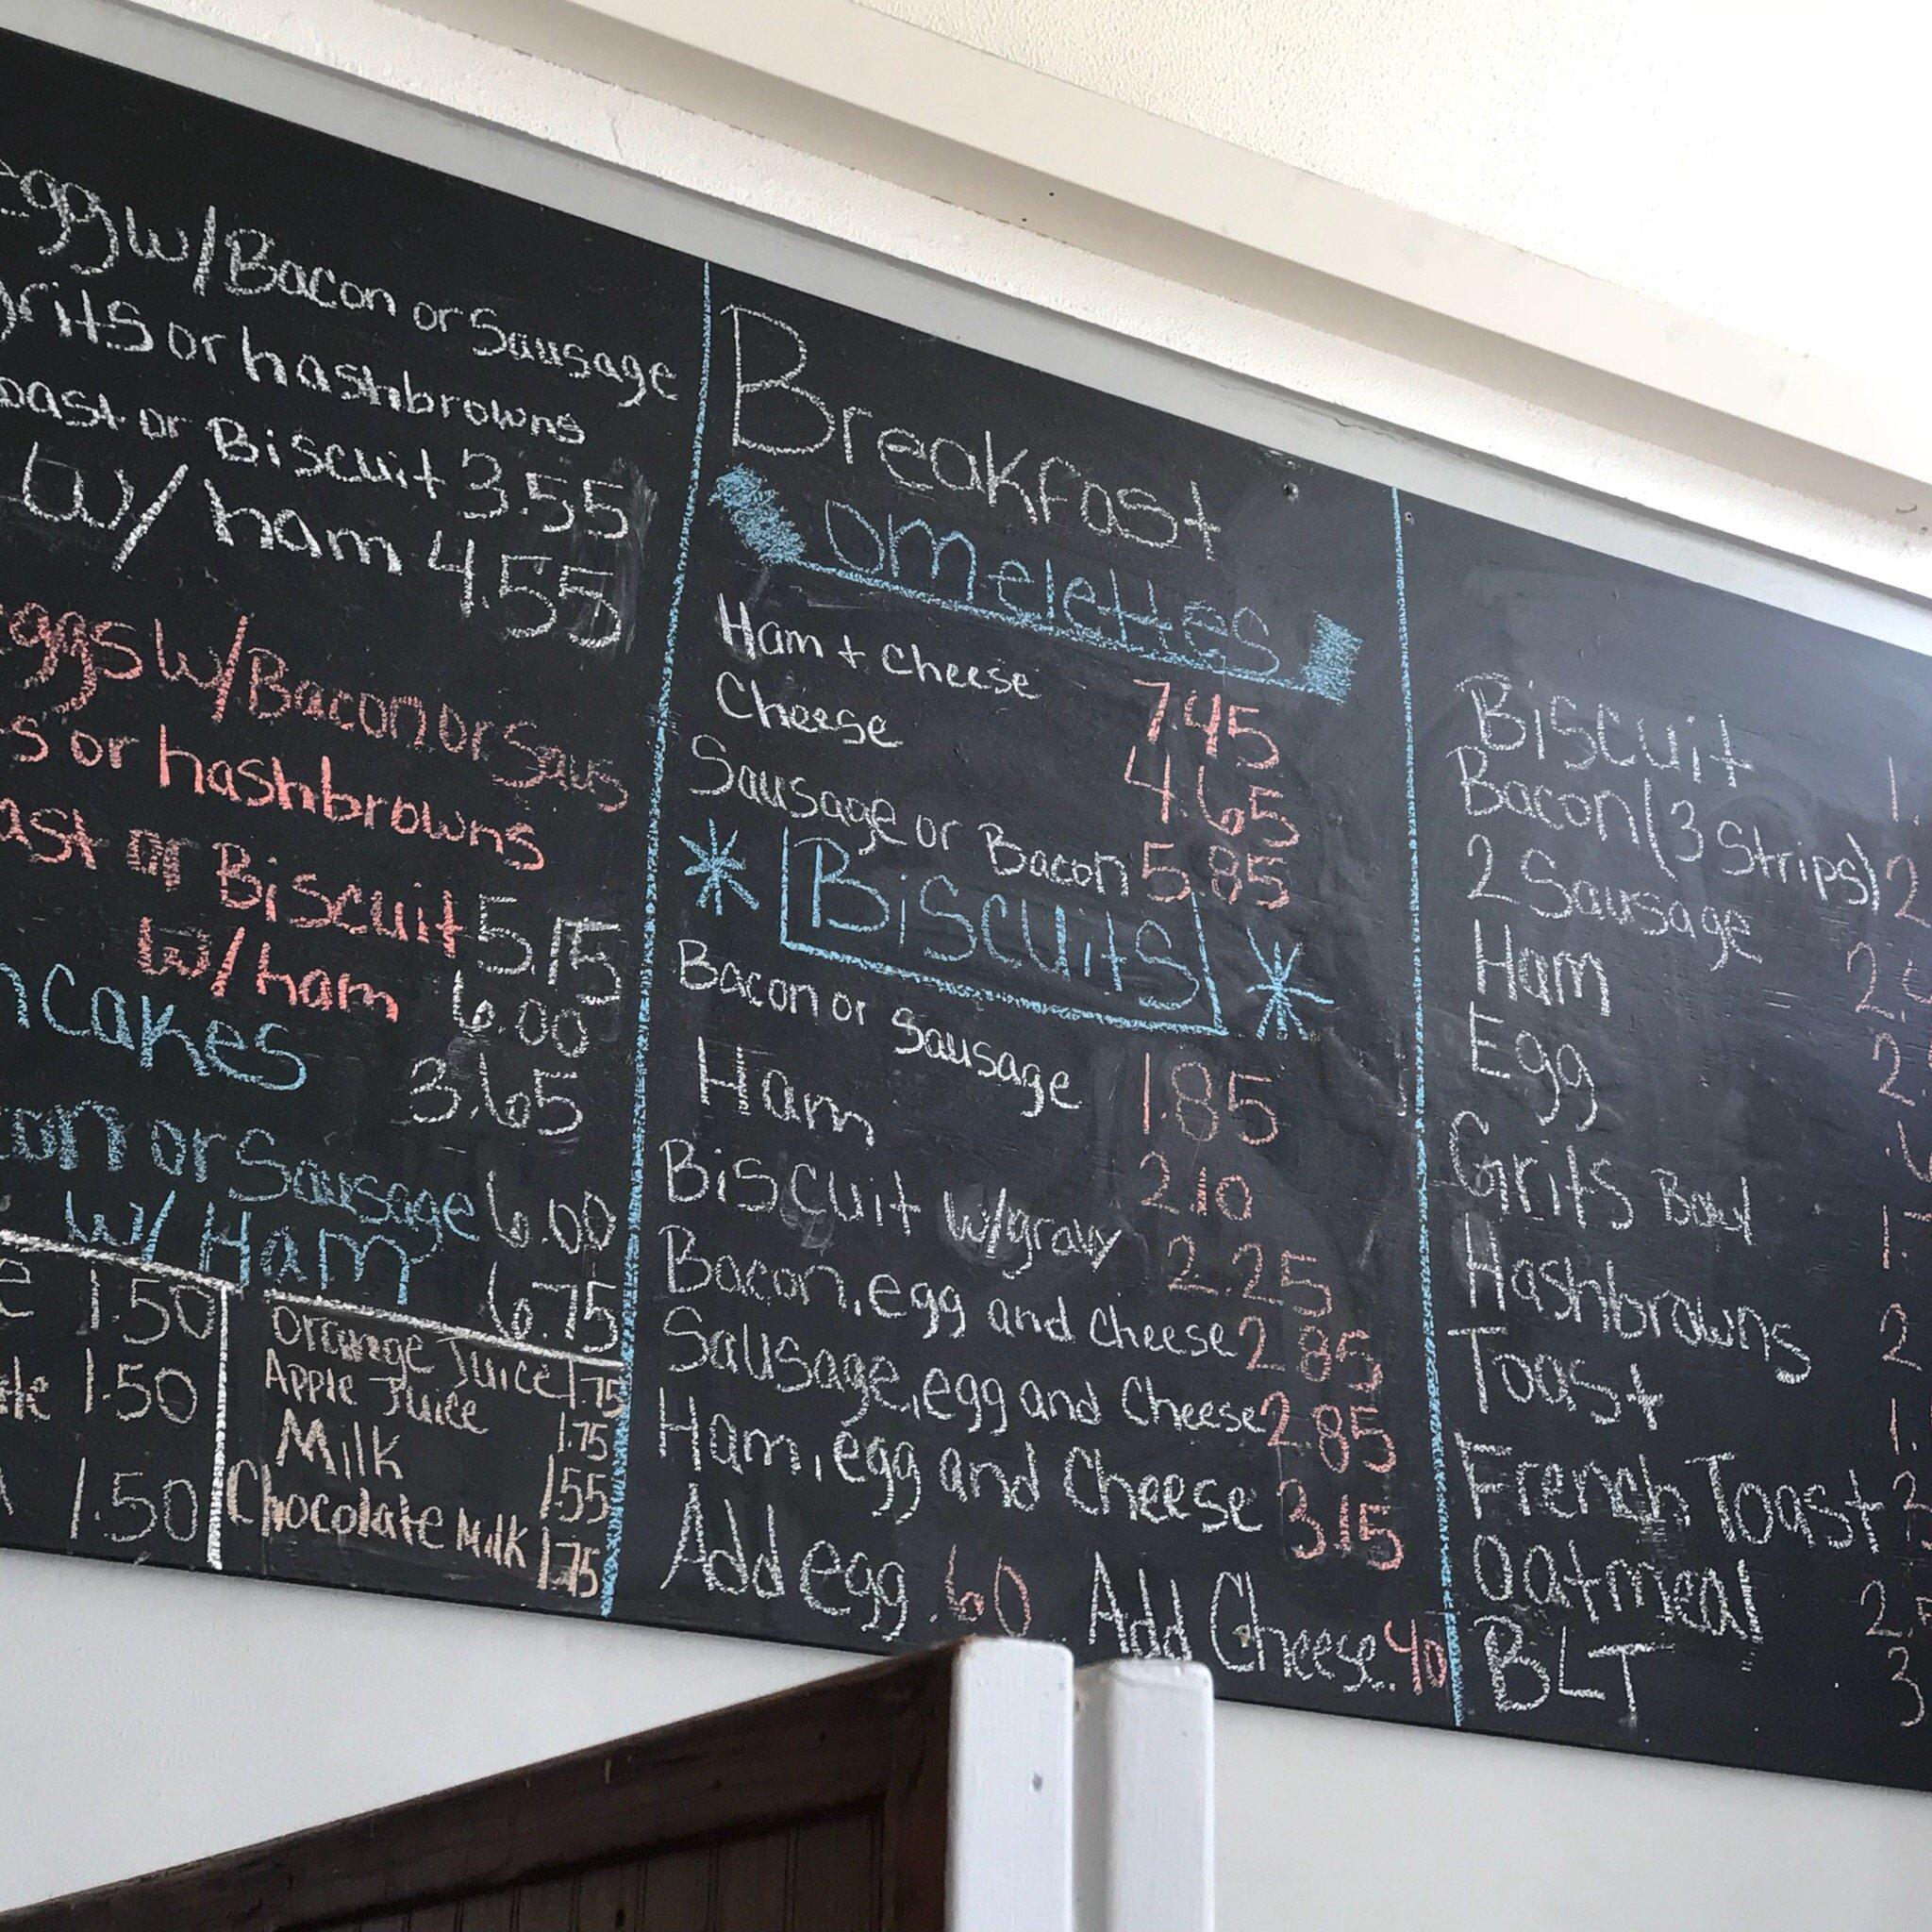 egg w/Bacon or Sausage
grits or hashbrowns
oast or Biscuit 3.55
w/ ham 4.55
eggs w/Bacon or Saus
s or hashbrowns
ast or Biscuit 5.15
w/ham 6.00
ncakes 3.65
con or Sausage 6.00
w/ Ham 6.75
e 1.50
1.50
1.50
Orange Juice 1.75
Apple Juice 1.75
Milk 1.55
Chocolate Milk 1.75
Breakfast
omelettes
Ham + Cheese 7.45
Cheese 4.65
Sausage or Bacon 5.85
Biscuits
Bacon or Sausage 1.85
Ham 2.10
Biscuit w/gravy 2.25
Bacon, egg and Cheese 2.85
Sausage, egg and Cheese 2.85
Ham, egg and Cheese 3.15
Add egg .60 Add Cheese .40
Biscuit 1.
Bacon (3 Strips) 2
2 Sausage 2.
Ham 2.
Egg
Grits Bowl 1.
Hashbrowns 2.
Toast 1.
French Toast
Oatmeal 2.
BLT 3